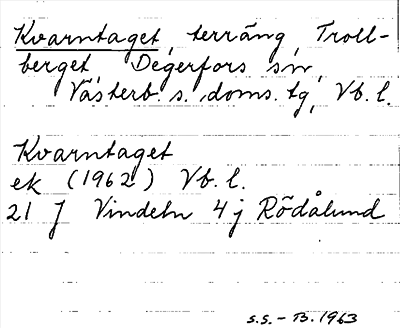 Kvarntaget, terräng, Troll-
berget, Degerfors sn,
Västerb. s. doms. tg, Vb. l.
Kvarntaget
ek (1962) Vb. l.
21 J Vindeln 4 j Rödålund
s.s. - B. 1963